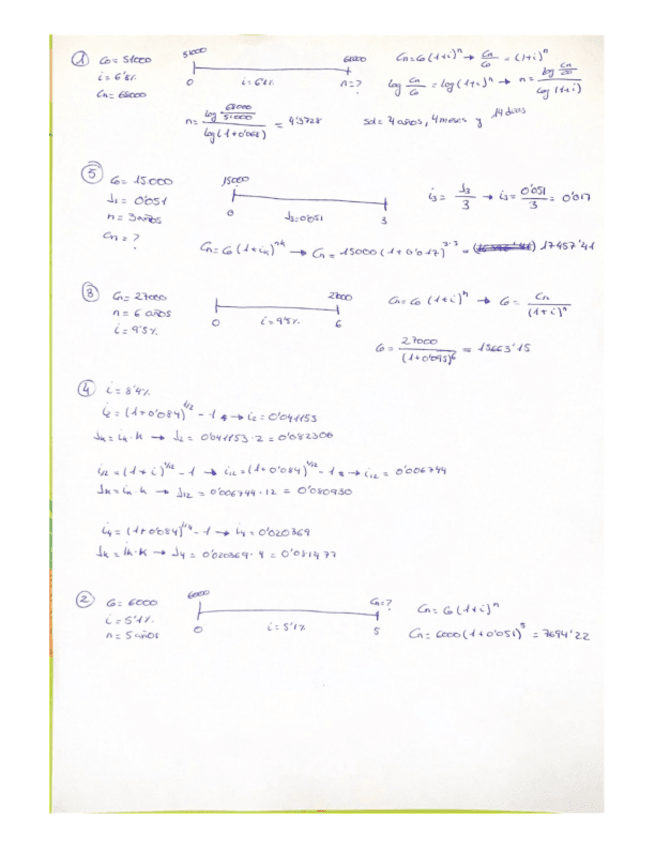 ① C₀= 51000
i = 6'8%
Cn= 68000
51000
0 i=6'8% n=?
Cn=C₀(1+i)ⁿ → Cn/C₀ = (1+i)ⁿ
log Cn/C₀ = log(1+i)ⁿ → n = log Cn/C₀ / log(1+i)
n= log 68000/51000 / log(1+0'068) = 4'3728 sol= 4 años, 4 meses y 14 días
⑤ C₀= 15000
J₃ = 0'051
n = 3 años
Cn = ?
15000
0 J₃=0'051 3
i₃ = J₃/3 → i₃ = 0'051/3 = 0'017
Cn= C₀(1+iₖ)ⁿᵏ → Cn= 15000(1+0'017)³·³ = 17457'41
③ Cn= 27000
n= 6 años
i= 9'5%
27000
0 i=9'5% 6
Cn=C₀(1+i)ⁿ → C₀= Cn/(1+i)ⁿ
C₀= 27000/(1+0'095)⁶ = 15663'15
④ i= 8'4%
i₂= (1+0'084)^1/2 - 1 → i₂= 0'041153
Jₖ= iₖ·k → J₂ = 0'041153·2 = 0'082306
i₁₂=(1+i)^1/12 - 1 → i₁₂=(1+0'084)^1/12 - 1 → i₁₂ = 0'006744
Jₖ=iₖ·k → J₁₂ = 0'006744·12 = 0'080930
i₄= (1+0'084)^1/4 - 1 → i₄= 0'020369
Jₖ = iₖ·k → J₄ = 0'020369·4 = 0'081477
② C₀= 6000
i= 5'1%
n= 5 años
6000 Cn=?
0 i=5'1% 5
Cn= C₀(1+i)ⁿ
Cn= 6000(1+0'051)⁵ = 7694'22